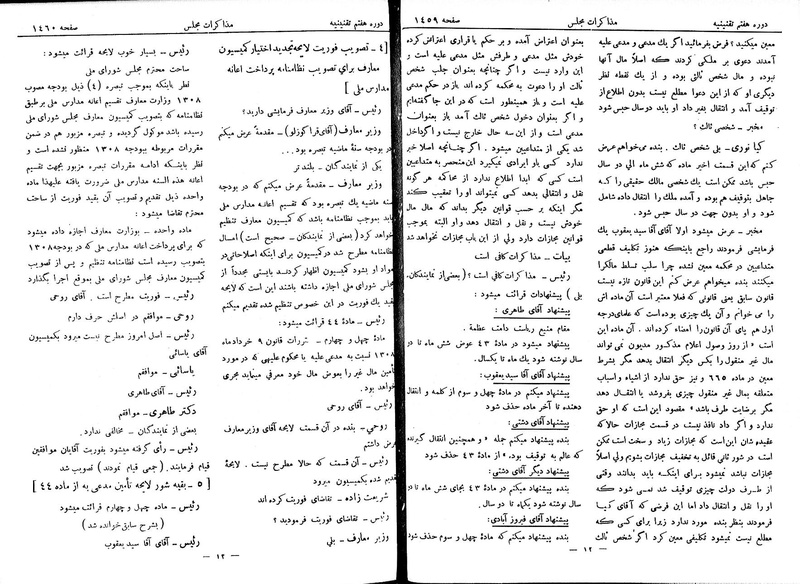 دوره هفتم تقنینیه مذاکرات مجلس صفحه ۱۴۵۹
معین میکنید؟ فرض بفرمائید اگر یك مدعی و مدعی علیه
آمدند دعوی بر ملکی کردند که اصلا مال آنها
نبوده و مال شخص ثالثی بوده و از یك نقطه نظر
دیگری او که از این دعوا مطلع نیست بدون اطلاع از
توقیف آمد و انتقال بغیر داد او باید دو سال حبس شود
مخبر - شخص ثالث ؟
کیا نوری- بلی شخص ثالث . بنده میخواهم عرض
کنم که این قسمت اخیر ماده که شش ماه الی دو سال
حبس باشد ممکن است یك شخصی مالك حقیقی را که
جاهل بتوقیف هم بوده و آمده ملك را انتقال داده شامل
شود و او بدون جهت دو سال حبس شود .
مخبر - عرض میشود اولا آقای آقا سید یعقوب یك
فرمایشی فرمودند راجع باینکه هنوز تکلیف قطعی
متداعیین در محکمه معین نشده چرا سلب تسلط مالکرا
میکنند بنده میخواهم عرض کنم این قانون تازه نیست
قانون سابق یعنی قانونی که فعلا معتبر است آن ماده اش
را می خوانم و آن یك چیزی بوده است که علمای درجه
اول هم پای آن قانون را امضاء کرده اند . آن ماده این
است « از روز وصول اعلام مذکور مدیون نمی تواند
مال غیر منقول را بکس دیگر انتقال بدهد مگر بشرط
معین در ماده ۶۶۵ و نیز حق ندارد از اشیاء و اسباب
متعلقه بمال غیر منقول چیزی بفروشد یا انتقال دهد
مگر برضایت طرف باشد » مقصود این است که او حق
ندارد و اگر داد نافذ نیست در قسمت مجازات حالا که
عقیده شان این است که مجازات زیاد و سخت است ممکن
است در شور ثانی قائل به تخفیف مجازات بشویم ولی اصلا
مجازات نباشد نمیشود برای اینکه باید بدانند وقتی
از طرف دولت چیزی توقیف شد نمی شود که
او را نقل و انتقال داد اما این فرضی که آقای کیا
فرمودند بنظر بنده مورد ندارد زیرا برای کسی که
مطلع نیست نمیشود تکلیفی معین کرد اگر شخص ثالث
بعنوان اعتراض آمده و بر حکم یا قراری اعتراض کرده
خودش مثل مدعی و طرفش مثل مدعی علیه است و
این وارد نیست و اگر چنانچه بعنوان جلب شخص
ثالث او را دعوت به محکمه کرده اند باز در حکم مدعی
علیه است و باز همینطور است که در این جا گفته‌ایم
و اگر بعنوان دخول شخص ثالث آمد باز بعنوان
مدعی است و از این سه حال خارج نیست و اگر داخل
شد یکی از متداعیین میشود . اگر چنانچه اصلا خبر
ندارد کسی باو ایرادی نمیگیرد این منحصر به متداعیین
است کسی که ابدا اطلاع ندارد از محاکمه هر گونه
نقل و انتقالی بدهد کسی نمیتواند او را تعقیب کند
مگر اینکه بر حسب قوانین دیگر بداند که مال مال
خودش نیست و نقل و انتقال دهد و او البته بموجب
قوانین مجازات دارد ولی از این باب مجازات نخواهد شد
بیات - مذاکرات کافی است
رئیس - مذاکرات کافی است ؟ ( بعضی از نمایندگان-
بلی ) پیشنهادات قرائت میشود :
پیشنهاد آقای طاهری :
مقام منیع ریاست دامت عظمة .
پیشنهاد میشود در ماده ۴۳ عوض شش ماه تا دو
سال نوشته شود یك ماه تا یکسال.
پیشنهاد آقای آقا سید یعقوب:
پیشنهاد میکنم در ماده چهل و سوم از کلمه و انتقال
دهنده تا آخر ماده حذف شود
پیشنهاد آقای دشتی :
بنده پیشنهاد میکنم جمله « و همچنین انتقال گیرنده
که عالم به توقیف بوده، » از ماده ۴۳ حذف شود
پیشنهاد دیگر آقای دشتی:
بنده پیشنهاد میکنم در ماده ۴۳ بجای شش ماه تا دو
سال نوشته شود یکماه تا دو سال .
پیشنهاد آقای فیروز آبادی:
بنده پیشنهاد میکنم که مادهٔ چهل و سوم حذف شود
— ۱۲ —
دوره هفتم تقنینیه مذاکرات مجلس صفحه ۱۴۶۰
[ ۴ - تصویب فوریت لایحه تجدید اختیار کمیسیون
معارف برای تصویب نظامنامه پرداخت اعانه
مدارس ملی ]
رئیس - آقای وزیر معارف فرمایشی دارید؟
وزیر معارف (آقای قراگوزلو) - مقدمةً عرض میکنم
در بودجه سنهٔ ماضیه تبصره بود
یکی از نمایندگان - بلندتر
وزیر معارف - مقدمةً عرض میکنم که در بودجه
سنه ماضیه یك تبصره بود که تقسیم اعانه مدارس ملی
باید بموجب نظامنامه باشد که کمیسیون معارف تنظیم
خواهد کرد (بعضی از نمایندگان - صحیح است) امسال
نظامنامه مطرح شد در کمیسیون برای اینکه اصلاحاتی در
مواد او بشود کمیسیون اظهار کردند بایستی مجدداً از
مجلس شورای ملی اجازه داشته باشند این است که لایحه
بقید یك فوریت در این خصوص تنظیم شده تقدیم میکنم
رئیس - مادهٔ ۴۴ قرائت میشود:
مادهٔ چهل و چهارم - مقررات قانون ۹ خرداد ماه
۱۳۰۸ نسبت به مدعی علیه یا محکوم علیهی که در مورد
تأمین مال غیر را بعوض مال خود معرفی مینماید مجری
خواهد بود.
رئیس - آقای روحی
روحی- بنده در آن قسمت لایحهٔ آقای وزیر معارف
عرض داشتم
رئیس - آن قسمت که حالا مطرح نیست . لایحهٔ
تقدیم شده بکمیسیون میرود
شریعت زاده - تقاضای فوریت کرده اند
رئیس - تقاضای فوریت فرمودید ؟
وزیر معارف - بلی
رئیس - بسیار خوب لایحه قرائت میشود :
ساحت محترم مجلس شورای ملی
نظر باینکه بموجب تبصره (۴) ذیل بودجه مصوب
۱۳۰۸ وزارت معارف تقسیم اعانه مدارس ملی بر طبق
نظامنامه که بتصویب کمیسیون معارف مجلس شورای ملی
رسیده باشد موکول گردیده و تبصره مزبور هم در ضمن
مقررات مربوطه ببودجه ۱۳۰۸ منظور نشده است و
نظر باینکه ادامه مقررات تبصره مزبور بجهت تقسیم
اعانه هذه السنه مدارس ملی ضرورت یافته علیهذا ماده
واحده ذیل تقدیم و تصویب آن بقید فوریت از ساحت
محترم تقاضا میشود :
ماده واحده - بوزارت معارف اجازه داده میشود
که برای پرداخت اعانه مدارس ملی که در بودجه ۱۳۰۸
بتصویب رسیده است نظامنامه تنظیم و پس از تصویب
کمیسیون معارف مجلس شورای ملی بموقع اجرا بگذارد
رئیس - فوریت مطرح است . آقای روحی
روحی - موافقم در اساس حرف دارم
رئیس - اصل امروز مطرح نیست میرود بکمیسیون
آقای یاسائی
یاسائی- موافقم
رئیس - آقای طاهری
دکتر طاهری- موافقم
بعضی از نمایندگان - مخالفی ندارد .
رئیس - رأی گرفته میشود بفوریت آقایان موافقین
قیام فرمایند . (جمعی قیام نمودند) تصویب شد
[ ۵ - بقیه شور لایحه تأمین مدعی به از ماده ۴۴ ]
رئیس - ماده چهل و چهارم قرائت میشود
(بشرح سابق خوانده شد)
رئیس - آقای آقا سید یعقوب
— ۱۲ —